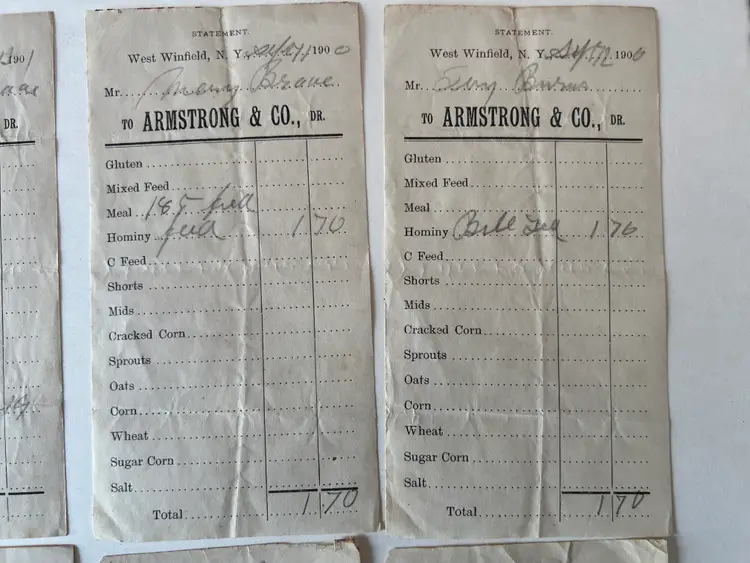 1901
DR.
STATEMENT.
West Winfield, N. Y. 1900
Mr.
TO ARMSTRONG & CO., DR.
Gluten
Mixed Feed
Meal 185
Hominy feed 1 70
C Feed
Shorts
Mids
Cracked Corn
Sprouts
Oats
Corn
Wheat
Sugar Corn
Salt
Total 1 70
STATEMENT.
West Winfield, N. Y. Sept 12 1900
Mr. Burns
TO ARMSTRONG & CO., DR.
Gluten
Mixed Feed
Meal
Hominy 1 70
C Feed
Shorts
Mids
Cracked Corn
Sprouts
Oats
Corn
Wheat
Sugar Corn
Salt
Total 1 70